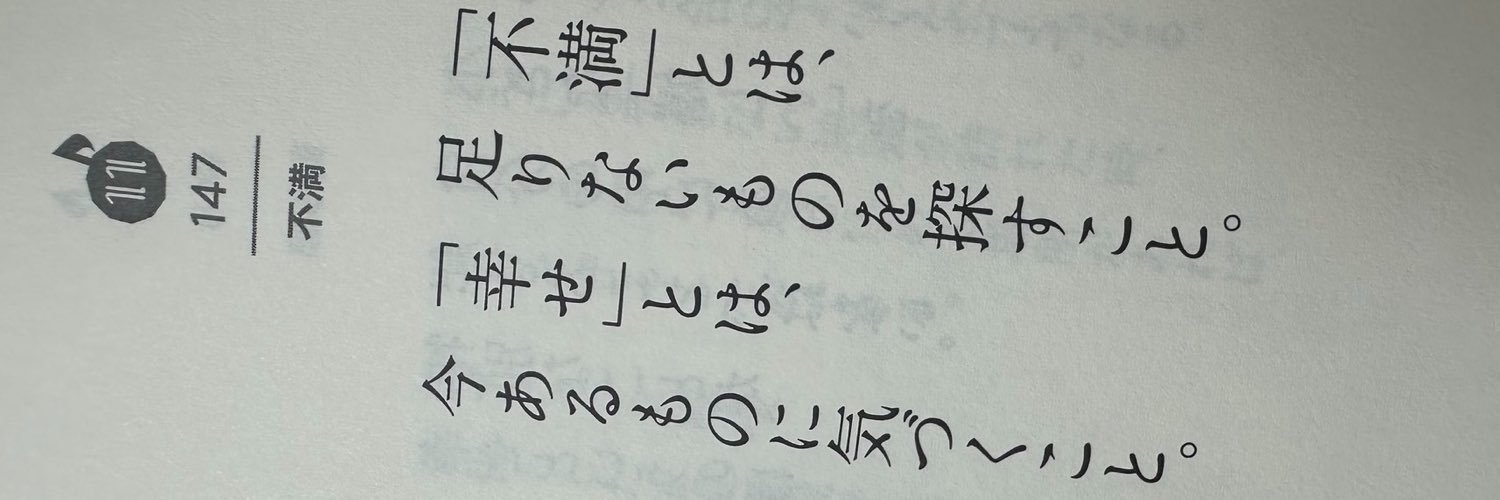 147
不満
「不満」とは、
足りないものを探すこと。
「幸せ」とは、
今あるものに気づくこと。